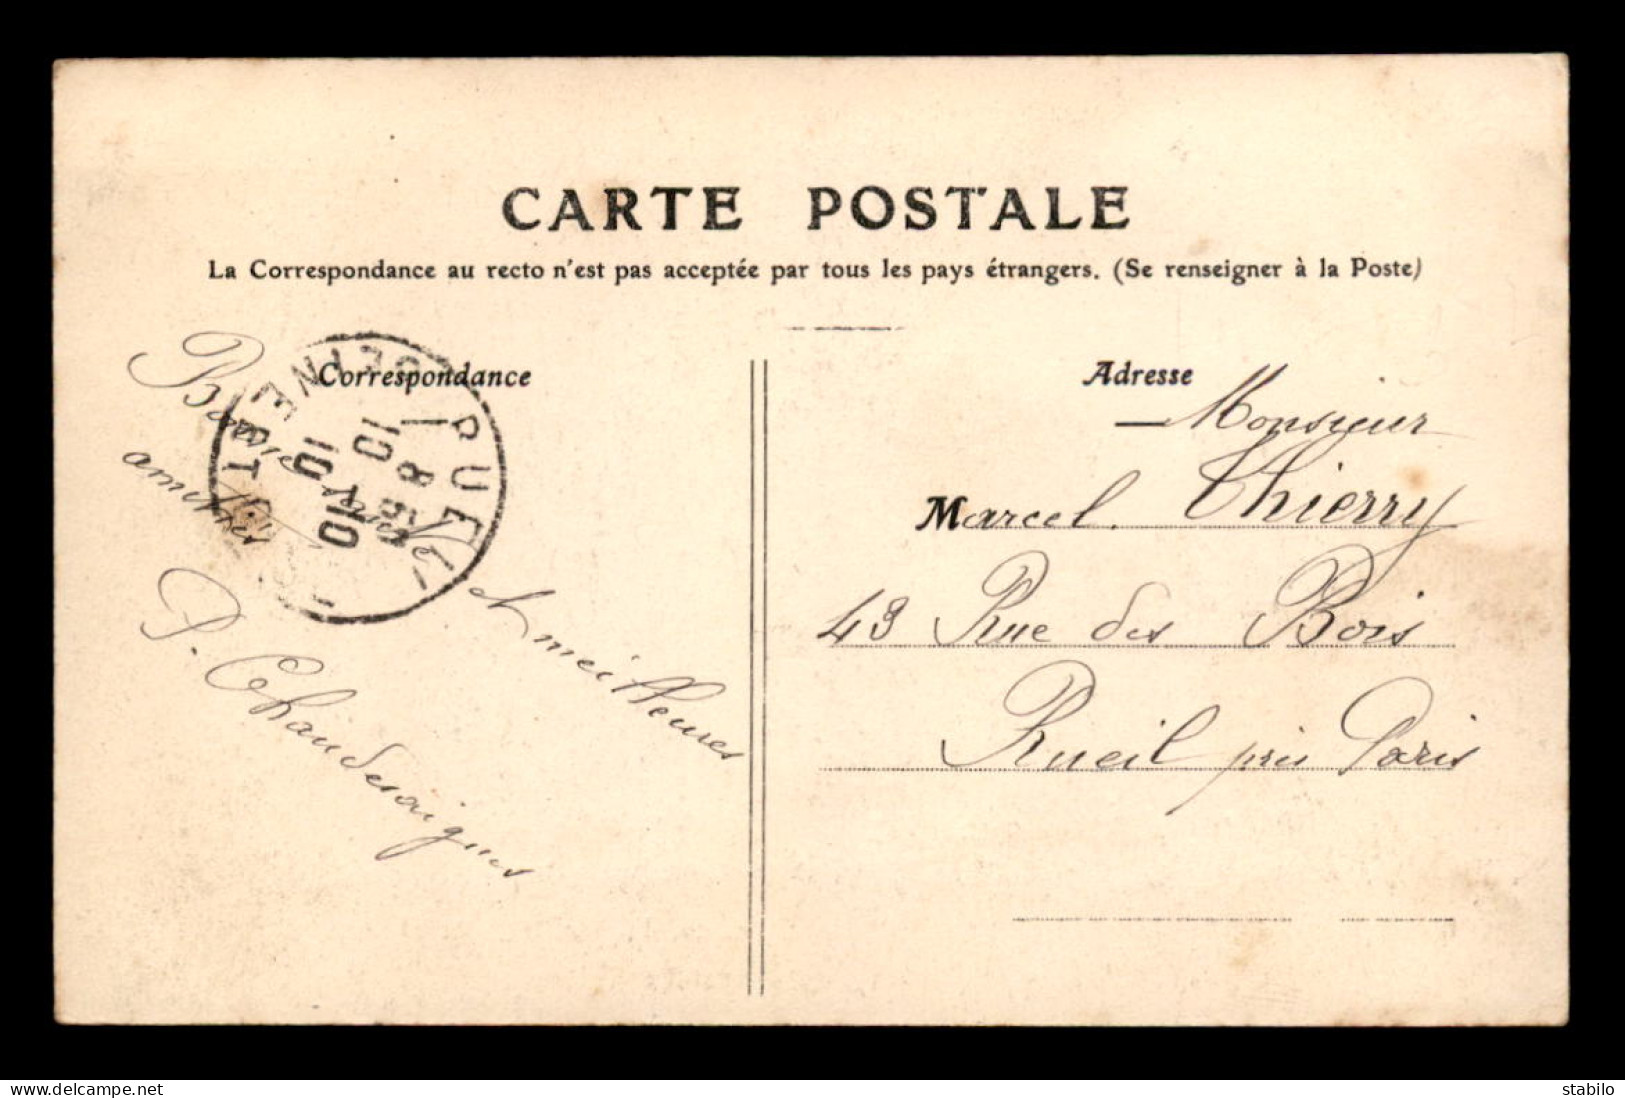 CARTE POSTALE
La Correspondance au recto n'est pas acceptée par tous les pays étrangers. (Se renseigner à la Poste)
Correspondance
Bonne santé
et meilleures
amitiés
P. Chaudesaigues
RUEIL
SEINE ET OISE
18
10 10 10
Adresse
Monsieur
Marcel Thierry
43 Rue des Bois
Rueil près Paris
delcampe.net
stabilo